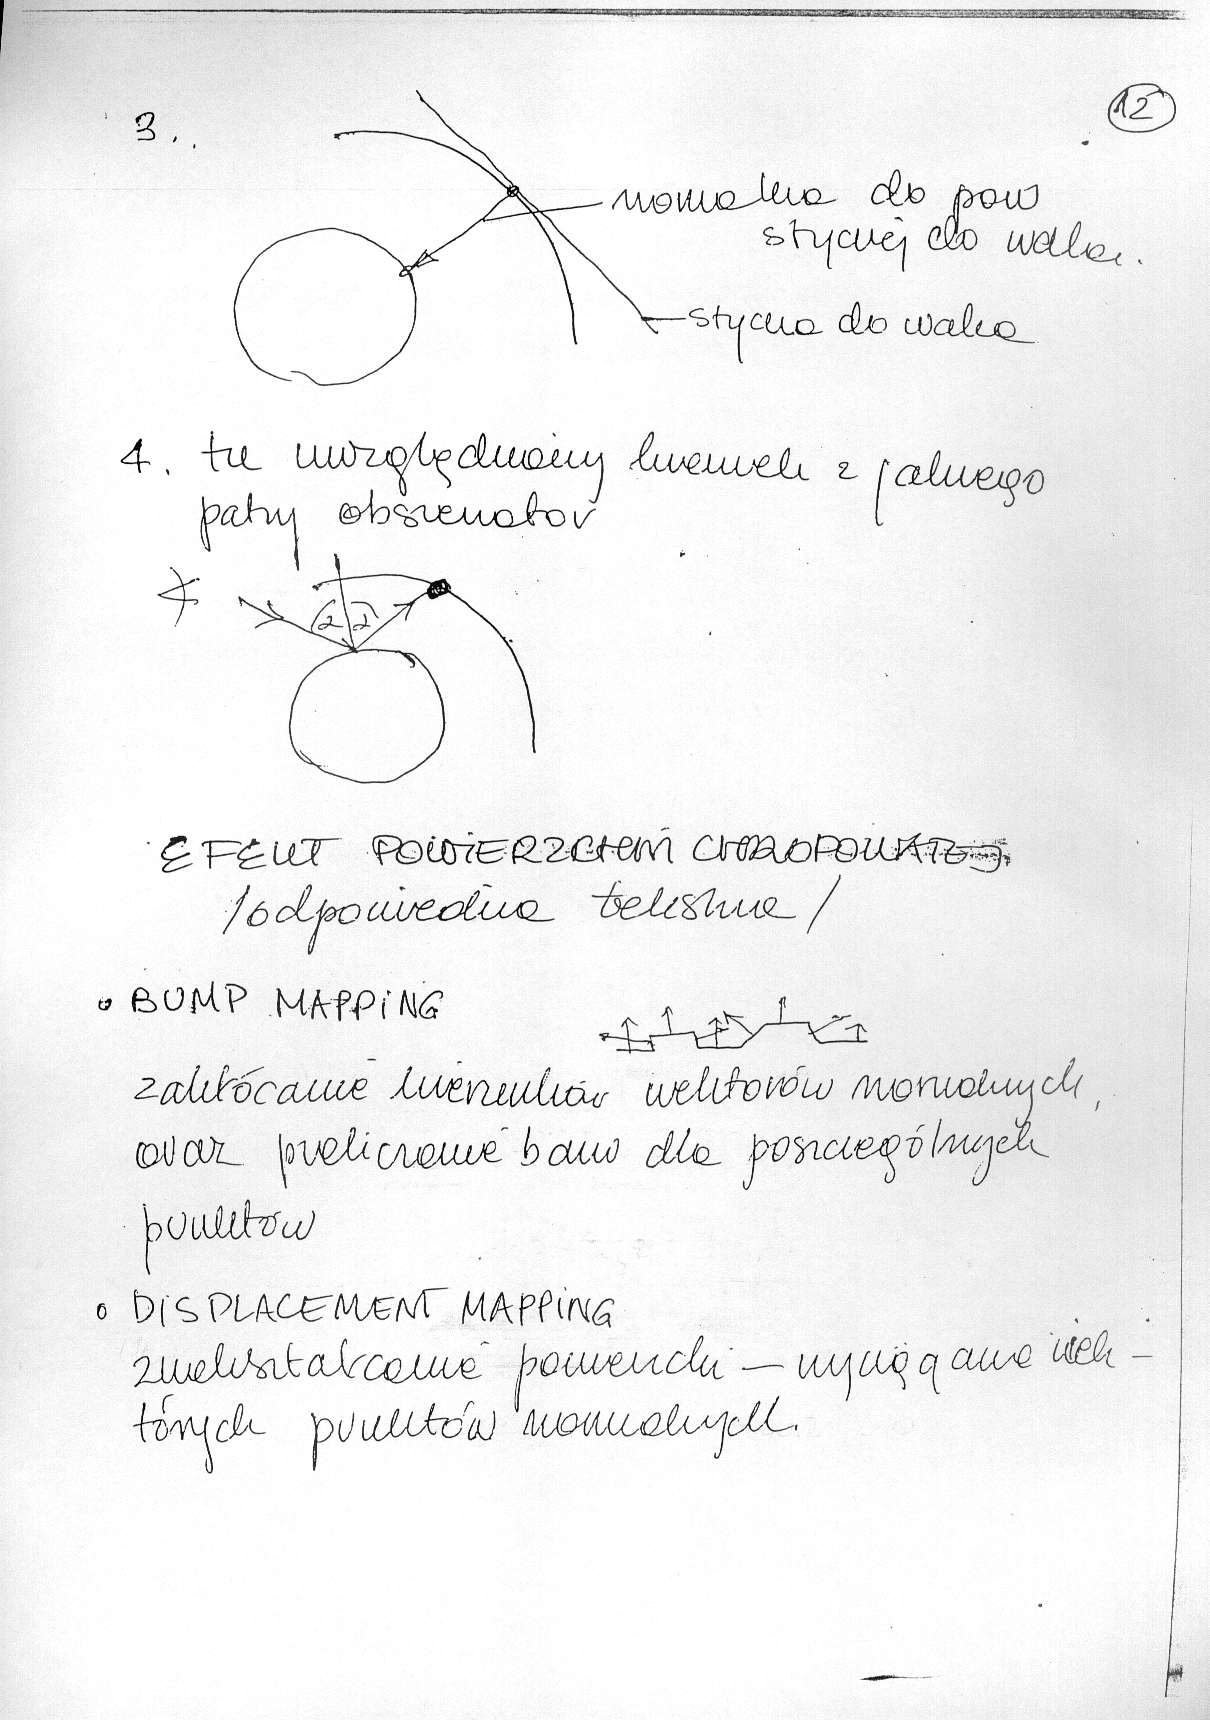 12
3.
normalna do pow
stycznej do walca.
styczna do walca
4. tu uwzględniamy kierunek z jakiego
patrzy obserwator
α α
EFEKT POWIERZCHNI CHROPOWATEJ
/odpowiednia tekstura/
• BUMP MAPPING
zakłócanie kierunków wektorów normalnych,
oraz przeliczanie barw dla poszczególnych
punktów
• DISPLACEMENT MAPPING
zniekształcanie powierzchni – wyciąganie niek-
tórych punktów normalnych.